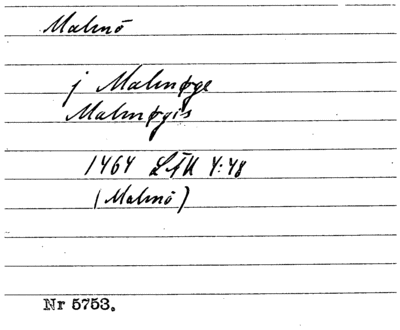 Malmö
j Malmøge
Malmøgis
1464 LÅU 4:48
(Malmö)
Nr 5753.